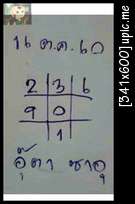 16 ต.ค. 60
2 3 6
9 0
1
อุ๊ดา ซาอุ
[341x600]upic.me